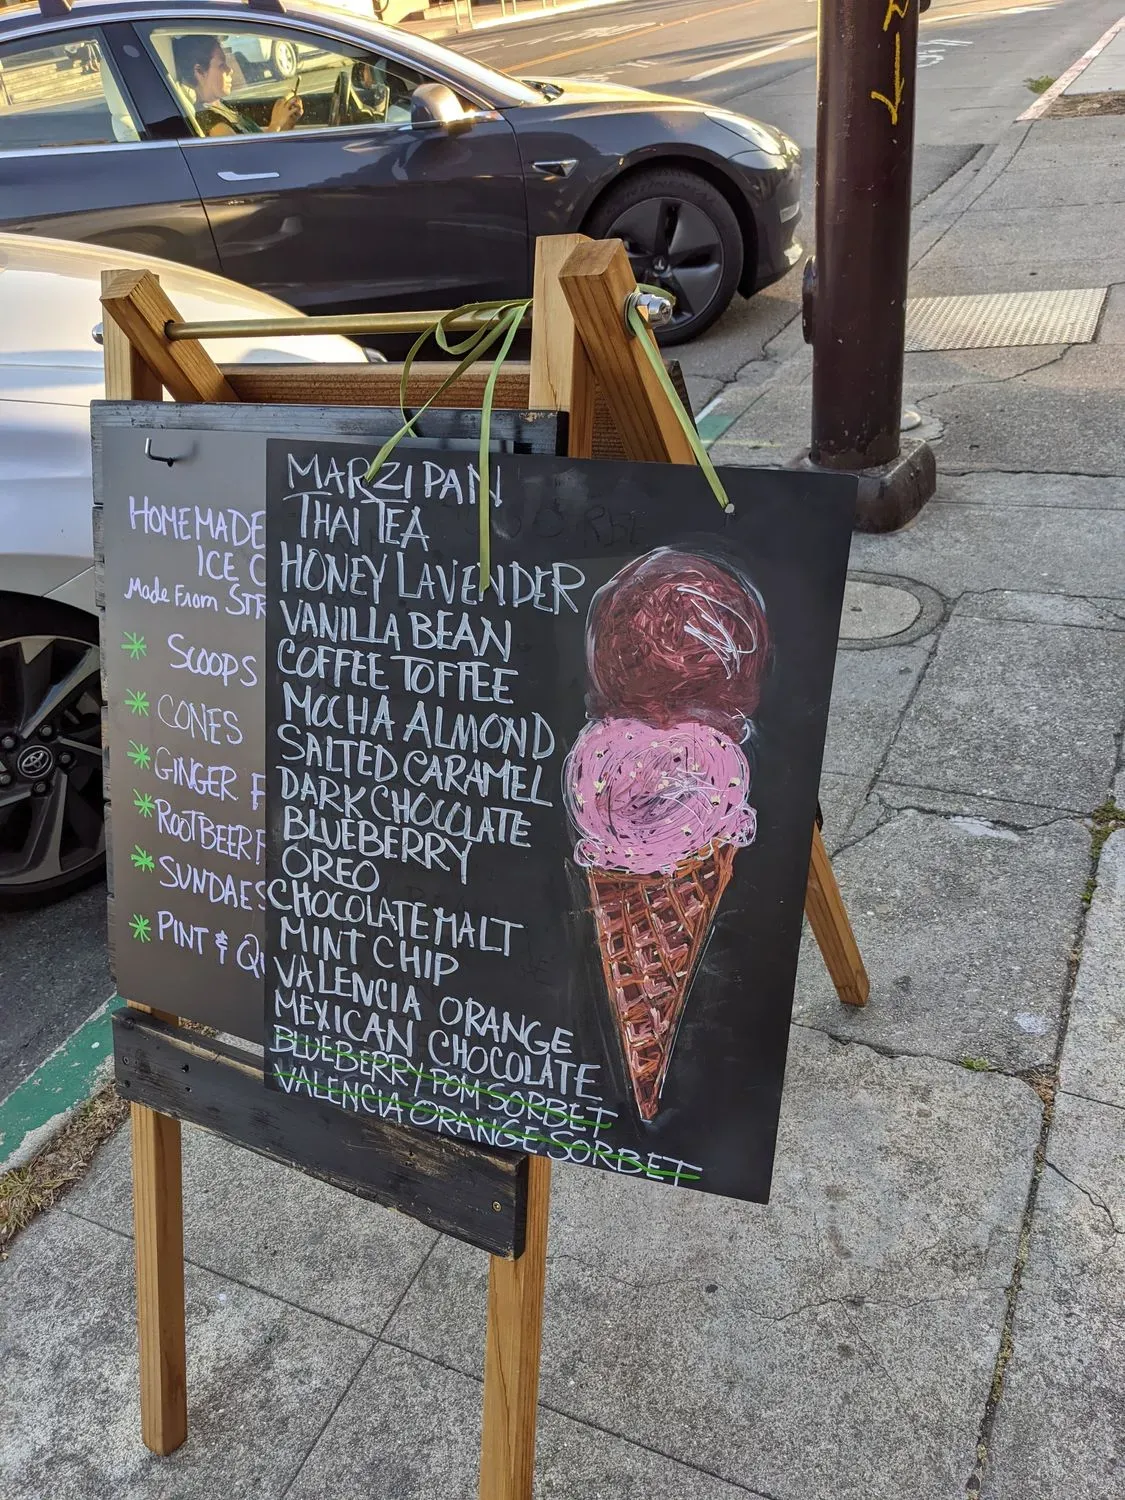 HOMEMADE
ICE
Made From
SCOOPS
CONES
GINGER
ROOTBEER
SUNDAES
PINT &
MARZIPAN
THAI TEA
HONEY LAVENDER
VANILLA BEAN
COFFEE TOFFEE
MOCHA ALMOND
SALTED CARAMEL
DARK CHOCOLATE
BLUEBERRY
OREO
CHOCOLATE MALT
MINT CHIP
VALENCIA ORANGE
MEXICAN CHOCOLATE
BLUEBERRY POM SORBET
VALENCIA ORANGE SORBET